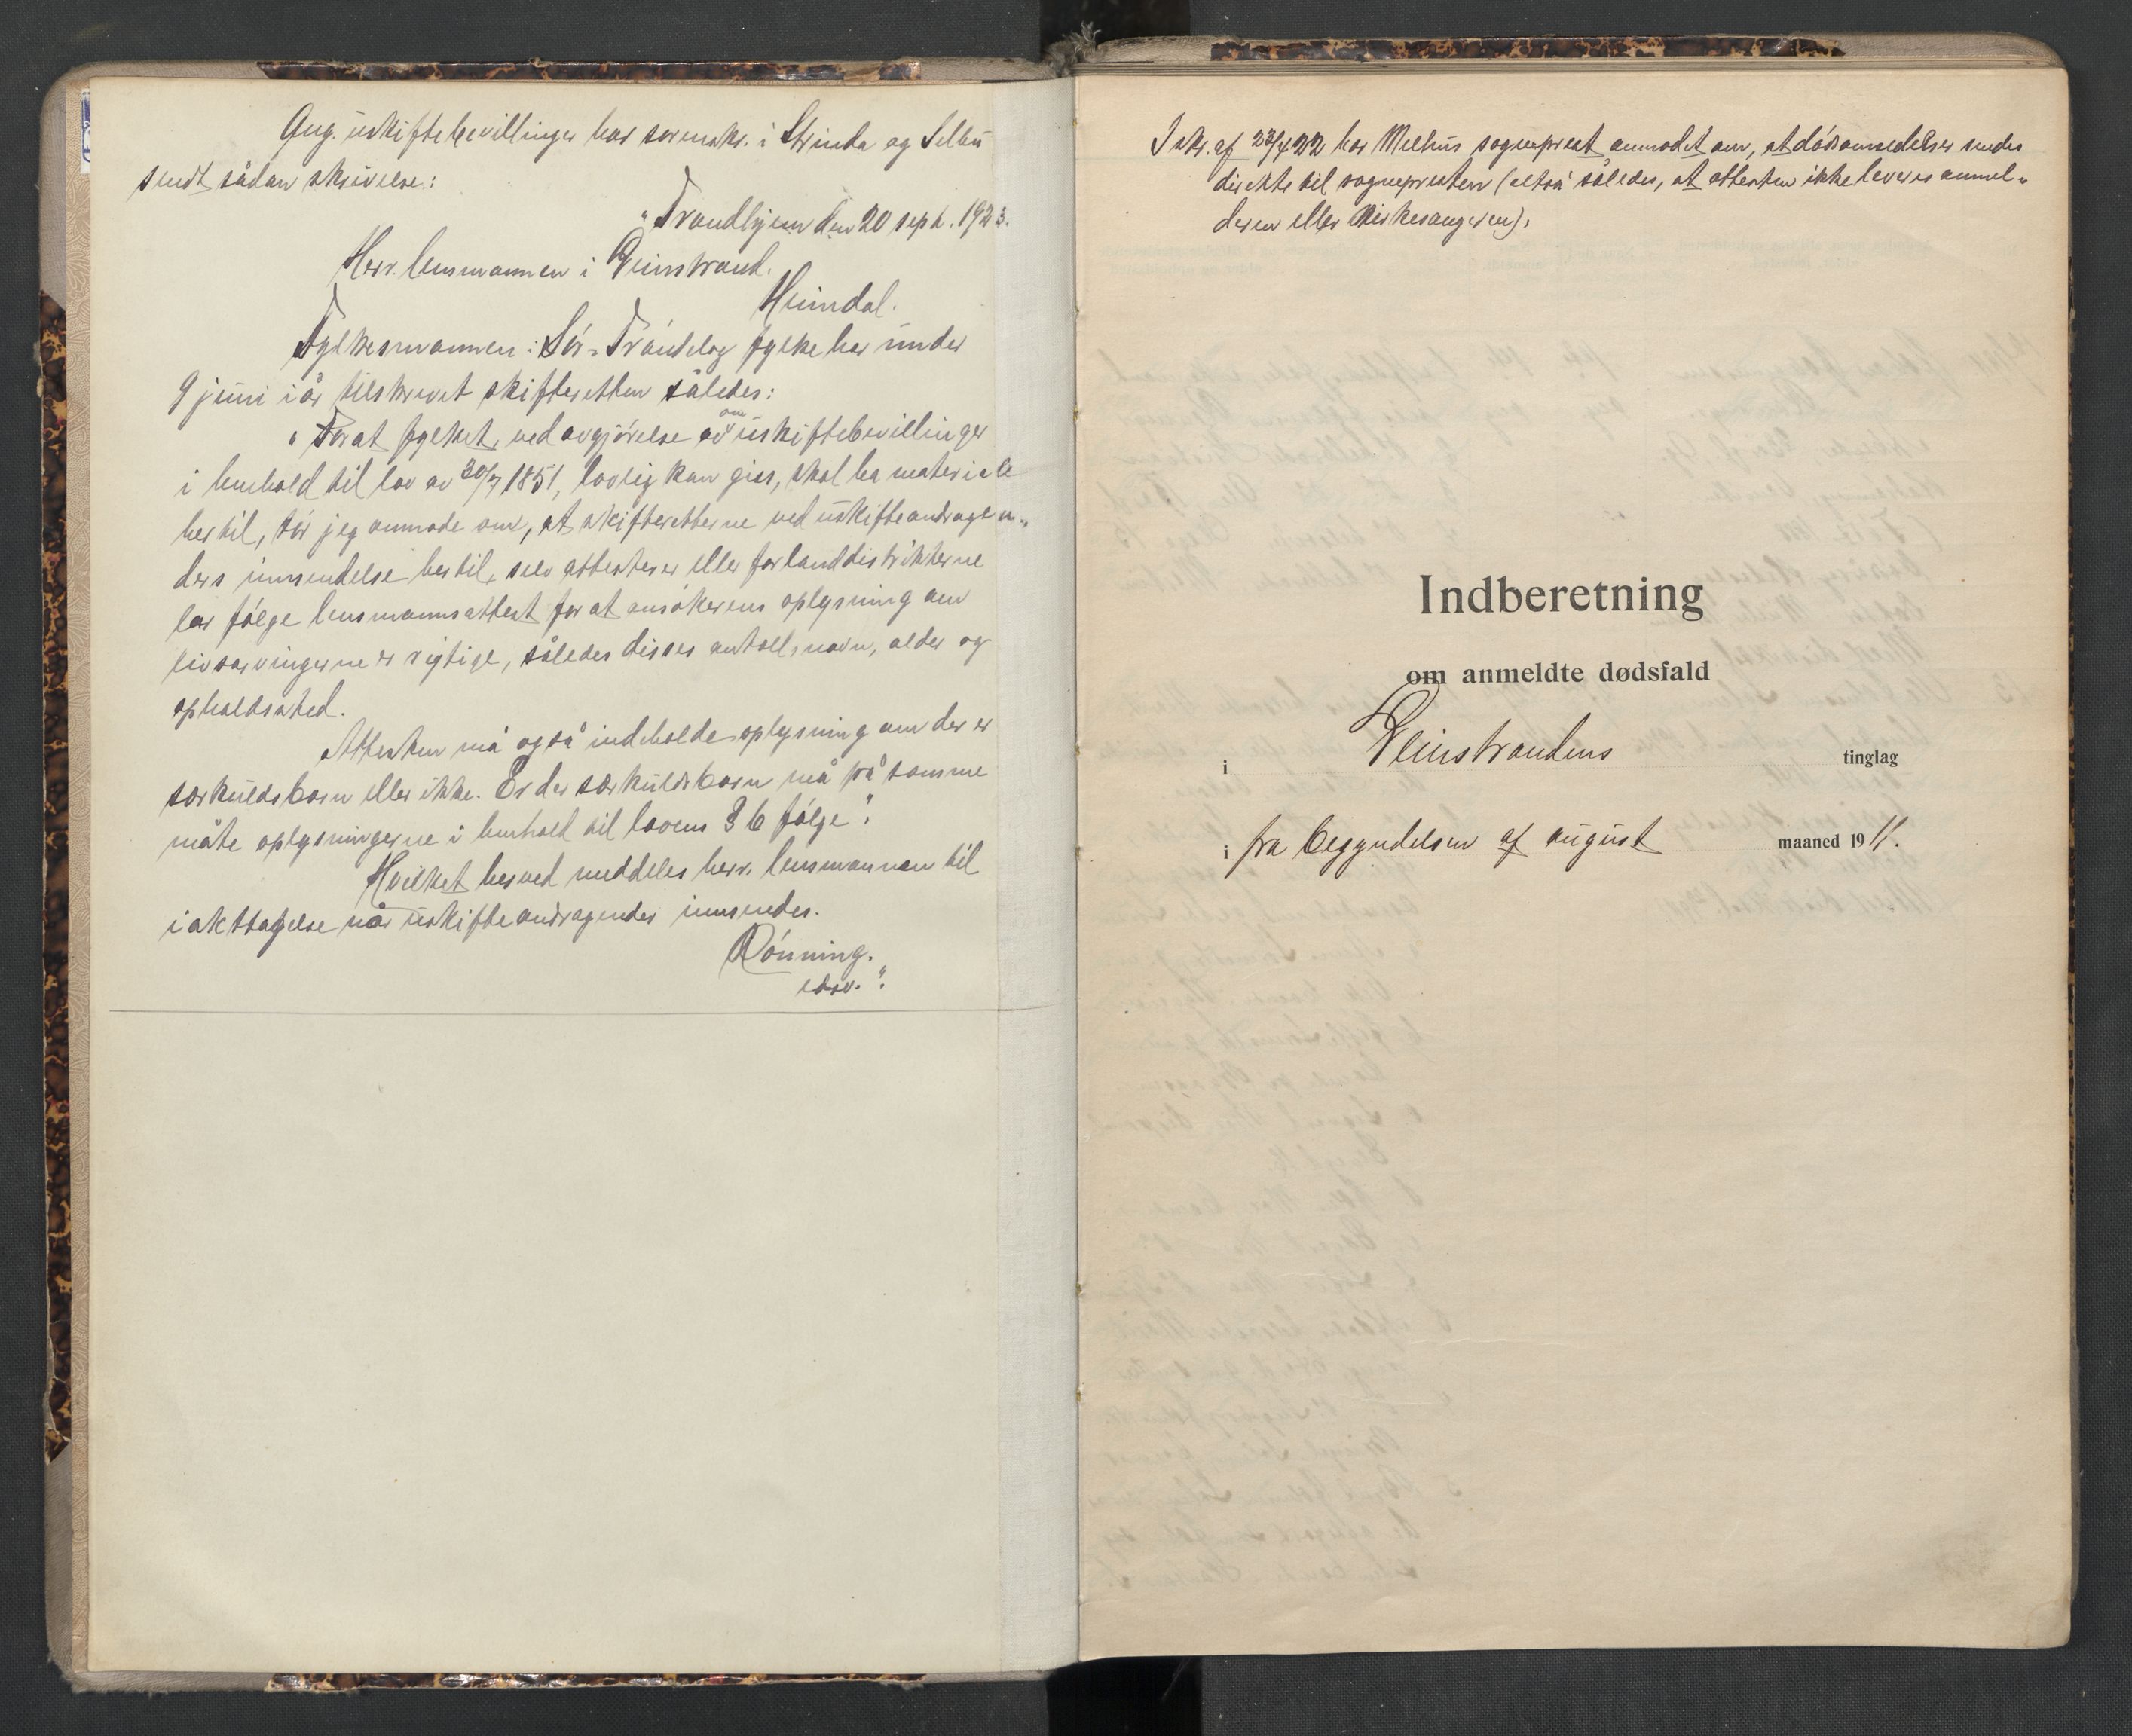 Ang. uskiftebevillinger har sorenskr. i Strinda og Selbu
sendt sådan skrivelse:
"Trondhjem den 20 sept. 1923.
Herr. lensmannen i Leinstrand.
Heimdal.
Fylkesmannen i Sör-Tröndelag fylke har under
9 juni i år tilskrevet skifteretten således:
"For at fylket, ved avgjörelse av om uskiftebevillinger
i henhold til lov av 30/7 1851, lovlig kan gies, skal ha materiale
hertil, tör jeg anmode om, at skifteretterne ved uskifteandragen-
ders innsendelse hertil, selv attesterer eller for landdistrikterne
lar fölge lensmannsattest for at ansökerens oplysning om
livsarvingerne er rigtige, således disses antall, navn, alder og
opholdssted.
Attesten må også indeholde oplysning om der er
særkuldsbarn eller ikke. Er der særkuldsbarn må på samme
måte oplysningerne i henhold til lovens § 6 fölge".
Hvilket herved meddeles herr. lensmannen til
iakttagelse når uskifteandragender innsendes.
Rönning.
edsv.".
I skr. af 23/4 22 har Melhus sogneprest anmodet om, at dödsanmeldelser sendes
direkte til sognepresten (altså således, at attesten ikke leveres anmel-
deren eller kirkesangeren).
Indberetning
om anmeldte dødsfald
i Leinstrandens tinglag
i fra begyndelsen af august maaned 1911.